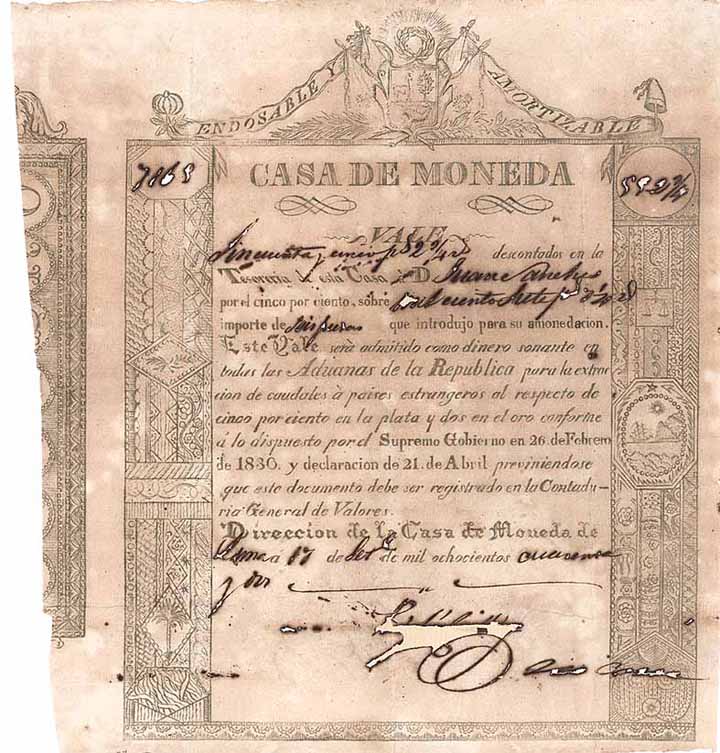 ENDOSABLE Y AMORTIZABLE
7865
CASA DE MONEDA
55 2¾
VALE
Sincuenta y cinco ps 2¾ rs descontados en la
Tesoreria de esta Casa á D. Juan
por el cinco por ciento, sobre
importe de que introdujo para su amonedacion.
Este Vale será admitido como dinero sonante en
todas las Aduanas de la Republica para la extrac
cion de caudales à paises estrangeros al respecto de
cinco por ciento en la plata y dos en el oro conforme
á lo dispuesto por el Supremo Gobierno en 26 de Febrero
de 1830. y declaracion de 21. de Abril previniendose
que este documento debe ser registrado en la Contadu-
ria General de Valores.
Direccion de la Casa de Moneda de
Lima á 17 de Set.e de mil ochocientos cuarenta
y dos